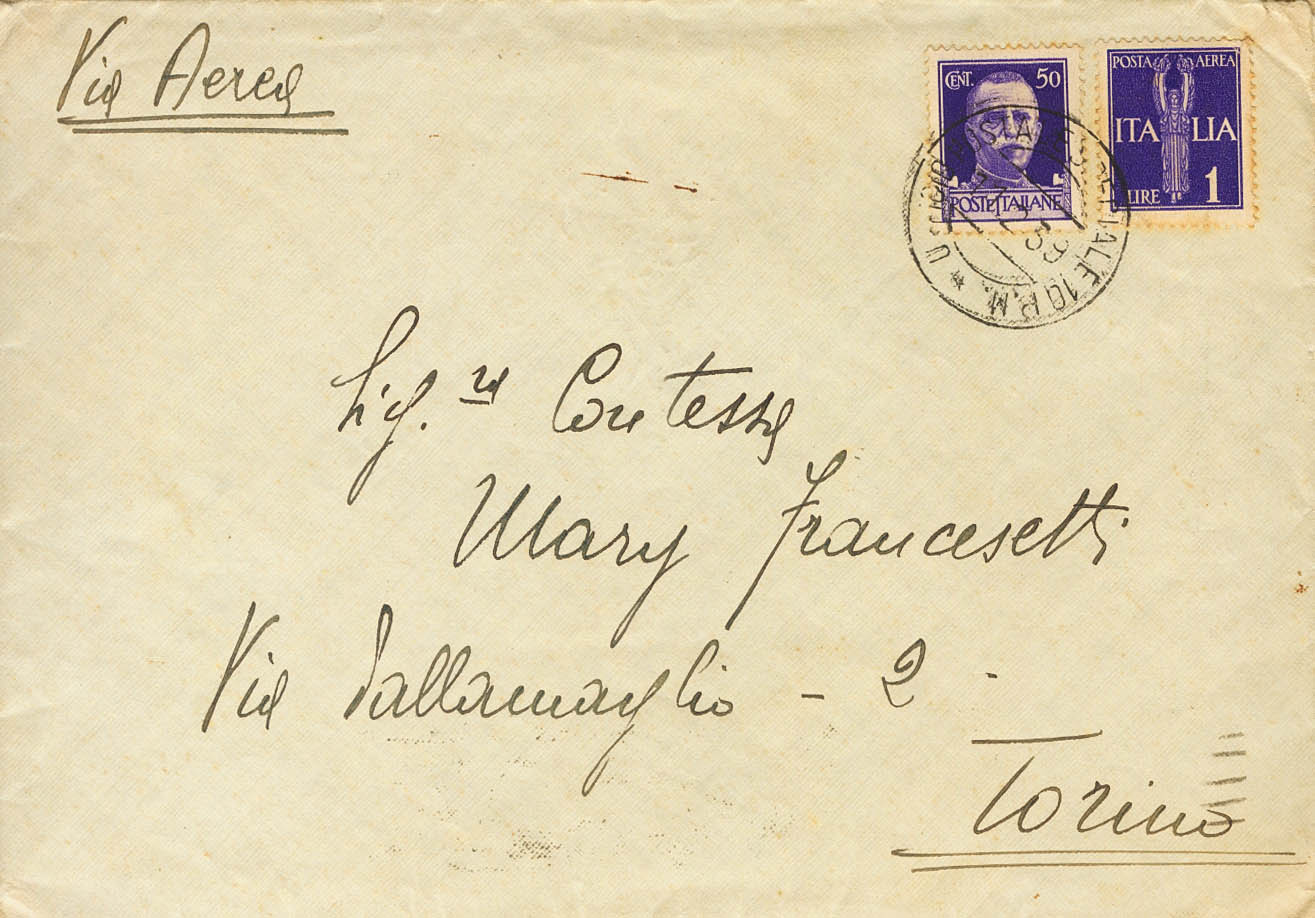 Via Aerea
CENT. 50
POSTE ITALIANE
POSTA AEREA
ITALIA
LIRE 1
UFFICIO POSTALE SPECIALE 10 R.M.
39
Sig.ra Contessa
Mary Francesetti
Via Pallamaglio - 2 -
Torino